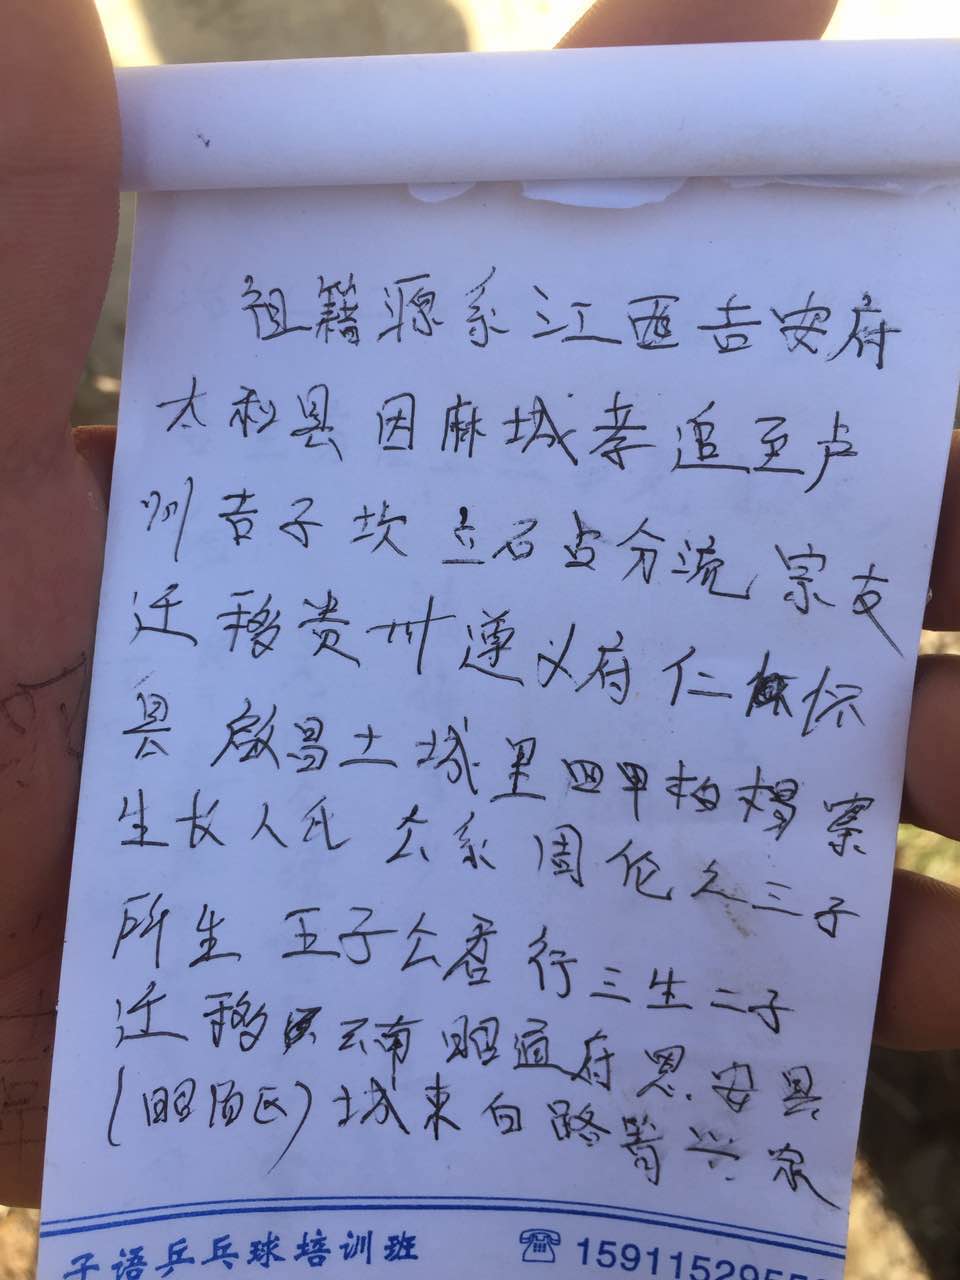 祖籍源系江西吉安府
太和县因麻城孝追至卢
州吉子坎立石占分流宗支
迁移贵州遵义府仁怀
县啟昌土城里四甲柏杨寨
生长人氏公系国伦之三子
所生五子公居行三生二子
迁移云南昭通府恩安县
(昭阳区)城东白路箐兴家
子语乒乓球培训班 ☎159115295